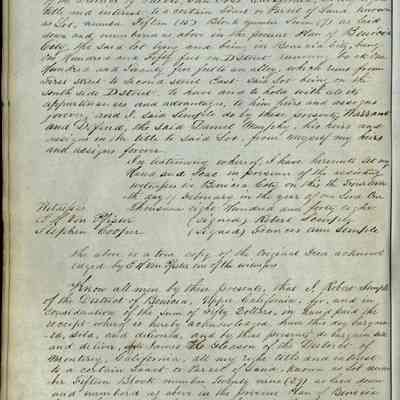 title and interest to a certain Tract or Parcel of Land, known
as Lot, number Fifteen (15) Block number Seven (7) as laid
down and numbered as above in the present Plan of Benicia
City, the Said lot lying and being in Benicia City, being
One Hundred and Fifty feet on D Street running back One
Hundred and Twenty five feet to an alley, which runs from
First Street to Second Street East Said lot being on the
South side D Street. to have and to hold with all its
appurtenances and advantages, to him heirs and assigns
forever, and I Said Semple do by these presents, Warrant
and Defend, the Said Daniel Murphy, his heirs and
assigns in the title to Said Lot, from myself my heirs
and assigns forever.
In testimony whereof, I have hereunto Set my
Hand and Seal in presence of the
witnesses in Benicia City on this the
th day of February in the year of our Lord One
thousand eight Hundred and forty eight
Witnesses
Von Pfister (Signed) Robert Semple
Stephen Cooper (Signed) Frances Ann Semple
the above is a true copy of the Original Deed acknowl
edged by Von Pfister one of the witnesses
Know all men by these presents, that I Robert Semple
of the District of Benicia, Upper California, for, and in
Consideration of the Sum of Fifty Dollars, in Hand paid the
receipt whereof is hereby acknowledged, have this day bargain
ed, Sold, and delivered, and by these presents, do bargain Sell
and deliver, unto James Gleason of the District of
Monterey, California, all my right title and interest
to a certain Tract or Parcel of Land, known as Lot num
ber Fifteen Block number Twenty nine (29) as laid down
and numbered as above in the present Plan of Benicia